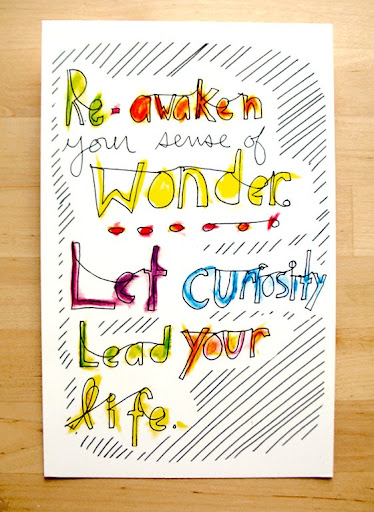 Re-awaken
your sense of
Wonder.
Let curiosity
Lead your
life.